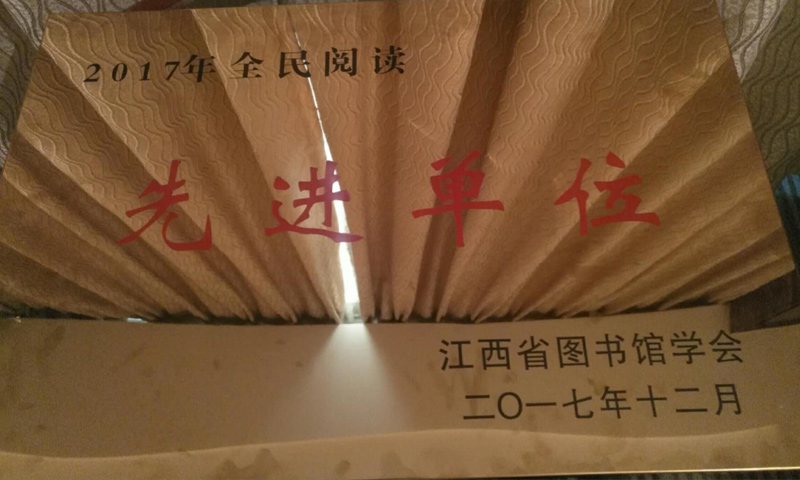 2017年全民阅读
先进单位
江西省图书馆学会
二〇一七年十二月